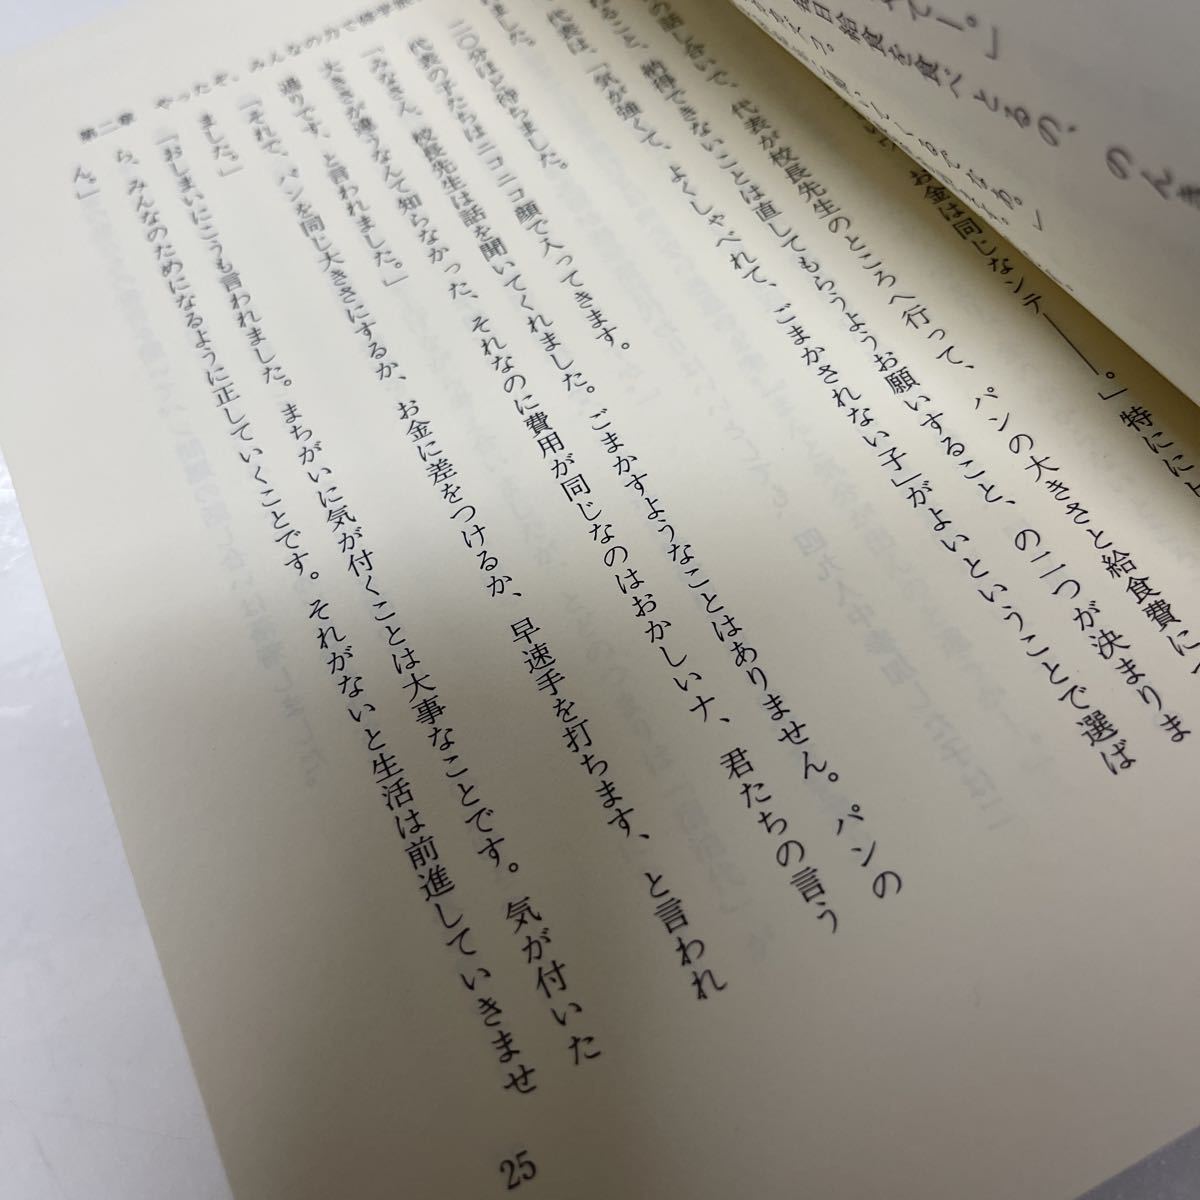 べー。」
毎日給食を食べとるの、のん
お金は同じなンテ——。」特に
の話し合いで、代表が校長先生のところへ行って、パンの大きさと給食費に
ること、納得できないことは直してもらうようお願いすること、の二つが決まりま
代表は、「気が強くて、よくしゃべれて、ごまかされない子」がよいということで選ば
ました。
二〇分ほど待ちました。
代表の子たちはニコニコ顔で入ってきます。
「みなさん、校長先生は話を聞いてくれました。ごまかすようなことはありません。パンの
大きさが違うなんて知らなかった、それなのに費用が同じなのはおかしいナ、君たちの言う
通りです、と言われました。」
「それで、パンを同じ大きさにするか、お金に差をつけるか、早速手を打ちます、と言われ
ました。」
「おしまいにこうも言われました。まちがいに気が付くことは大事なことです。気が付いた
ら、みんなのためになるように正していくことです。それがないと生活は前進していきませ
ん。」
第二章 やったぞ、みんなの力で修学旅
25